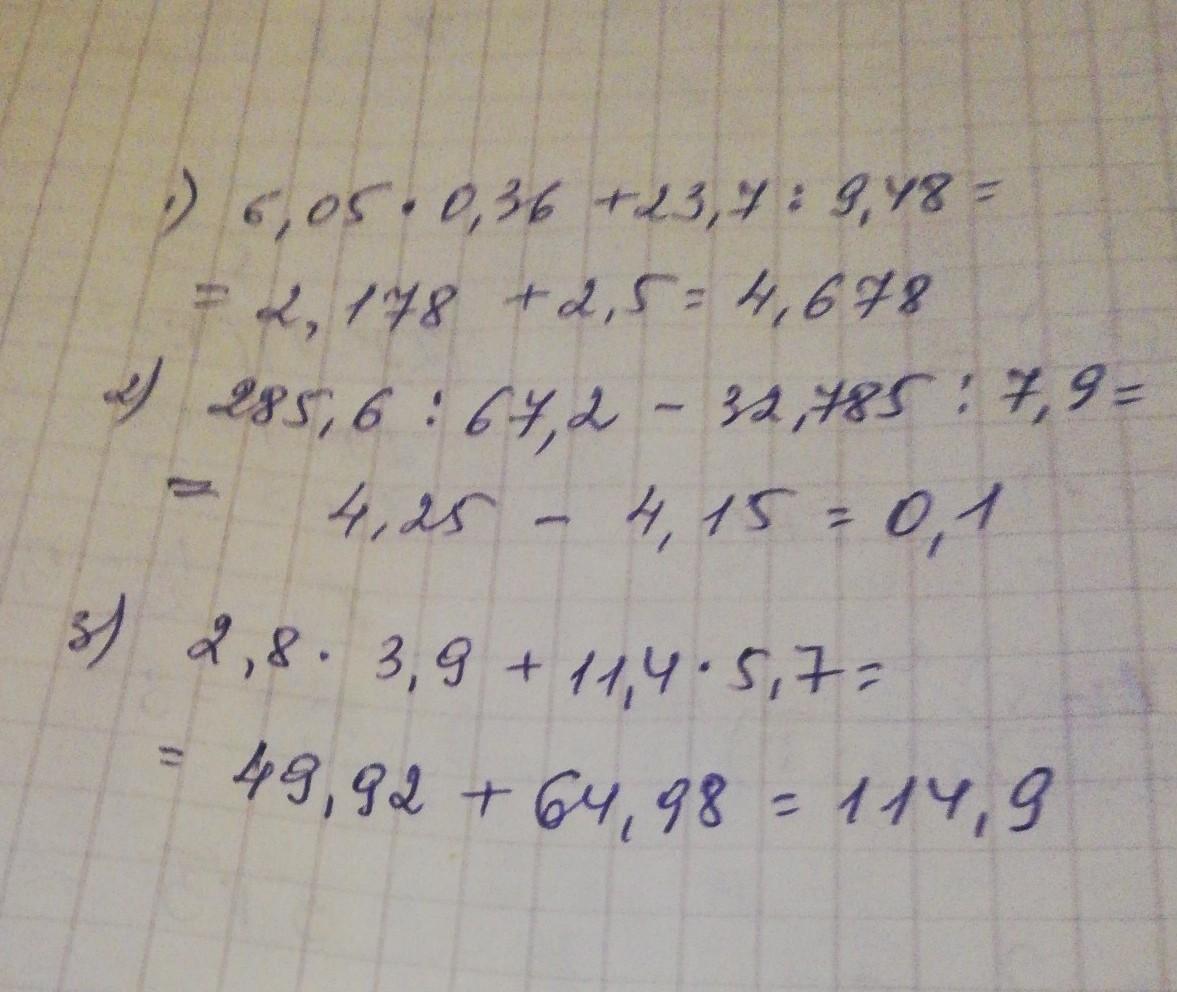 1) 6,05 · 0,36 + 23,7 : 9,48 =
= 2,178 + 2,5 = 4,678
2) 285,6 : 67,2 - 32,785 : 7,9 =
= 4,25 - 4,15 = 0,1
3) 2,8 · 3,9 + 11,4 · 5,7 =
= 49,92 + 64,98 = 114,9